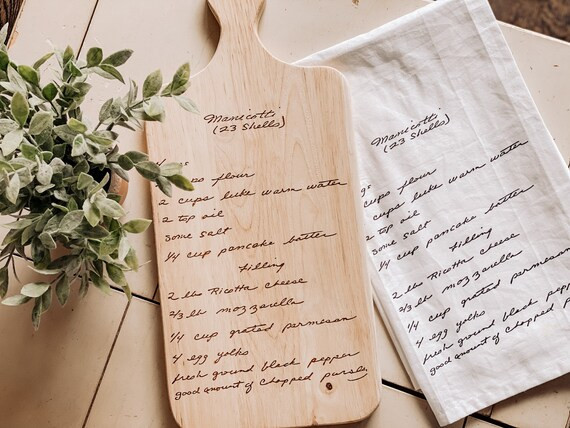 Manicotti
(23 Shells)
flour
2 cups luke warm water
2 tsp oil
some salt
1/4 cup pancake batter
filling
2 lbs Ricotta cheese
2/3 lb mozzarella
1/4 cup grated parmesan
4 egg yolks
fresh ground black pepper
good amount of chopped parsley
Manicotti
(23 Shells)
cups flour
cups luke warm water
2 tsp oil
some salt
1/4 cup pancake batter
filling
2 lbs Ricotta cheese
2/3 lb mozzarella
1/4 cup grated parmesan
4 egg yolks
fresh ground black pepper
good amount of chopped